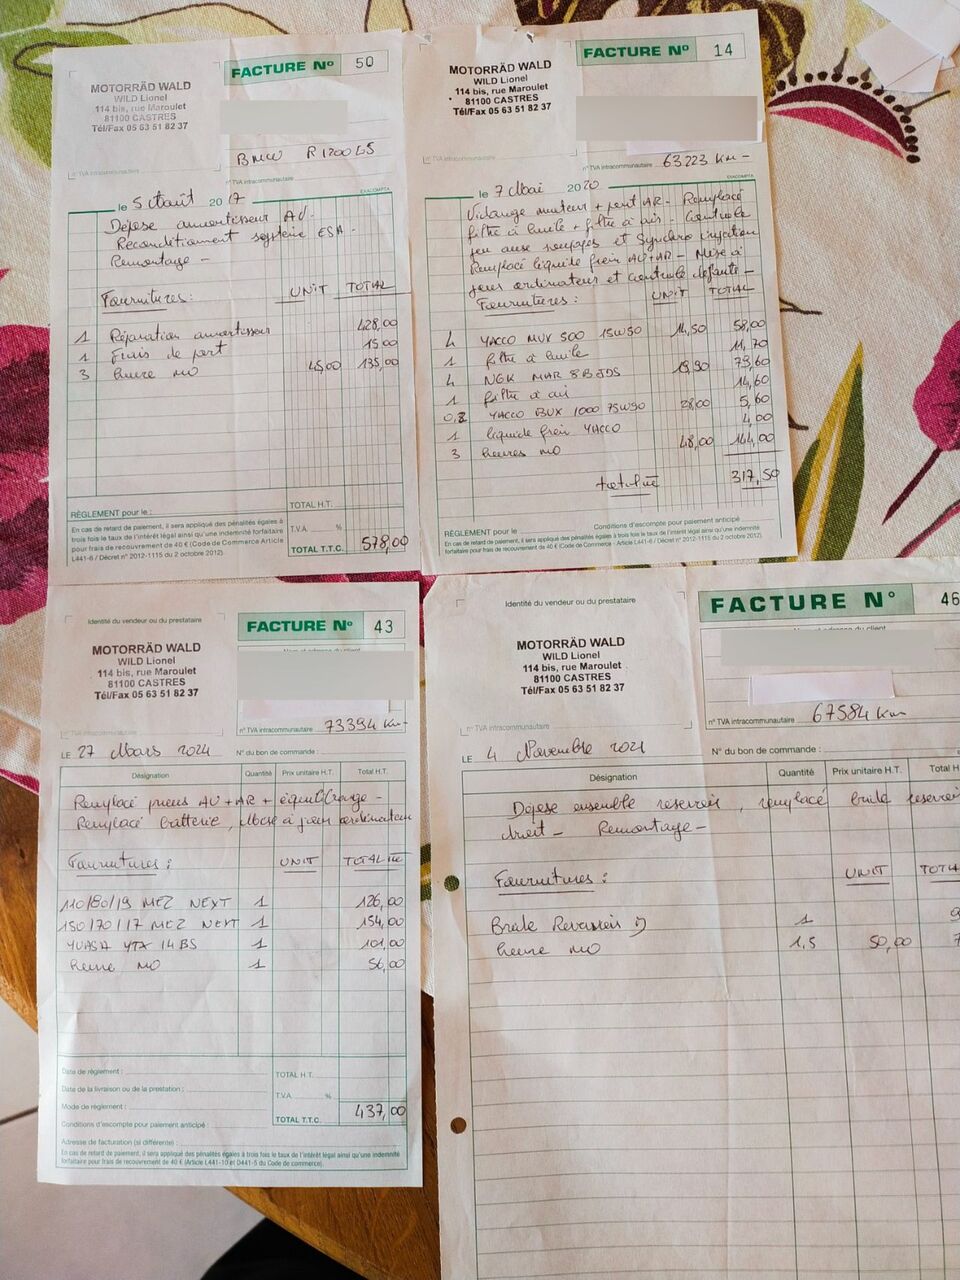 MOTORRÄD WALD
WILD Lionel
114 bis, rue Maroulet
81100 CASTRES
Tél/Fax 05 63 51 82 37
FACTURE Nº 50
BMW R 1200 GS
n° TVA intracommunautaire
EXACOMPTA
le 5 Août 2017
Dépose amortisseur AV-
Reconditionnement système ESA-
Remontage-
Fournitures: UNIT TOTAL
1 Réparation amortisseur 428,00
1 Frais de port 15,00
3 heure MO 45,00 135,00
TOTAL H.T.
RÈGLEMENT pour le :
T.V.A. %
En cas de retard de paiement, il sera appliqué des pénalités égales à
trois fois le taux de l'intérêt légal ainsi qu'une indemnité forfaitaire
pour frais de recouvrement de 40 € (Code de Commerce Article
L441-6 / Décret n° 2012-1115 du 2 octobre 2012).
TOTAL T.T.C. 578,00
MOTORRÄD WALD
WILD Lionel
114 bis, rue Maroulet
81100 CASTRES
Tél/Fax 05 63 51 82 37
FACTURE Nº 14
n° TVA intracommunautaire 63223 Km-
EXACOMPTA
le 7 Mai 2020
Vidange moteur + pont AR- Remplacé
filtre à huile + filtre à air- Contrôle
jeu aux soupapes et Synchro injection
Remplacé liquide frein AV+AR- Mise à
jour ordinateur et contrôle défauts-
Fournitures: UNIT TOTAL
4 YACCO MVX 500 15W50 14,50 58,00
1 filtre à huile 11,70
4 NGK MAR 8B JDS 19,90 79,60
1 filtre à air 14,60
0,2 YACCO BVX 1000 75W90 28,00 5,60
1 liquide frein YACCO 4,00
3 heures MO 48,00 144,00
317,50
RÈGLEMENT pour le
Conditions d'escompte pour paiement anticipé
En cas de retard de paiement, il sera appliqué des pénalités égales à trois fois le taux de l'intérêt légal ainsi qu'une indemnité
forfaitaire pour frais de recouvrement de 40 € (Code de Commerce - Article L441-6 / Décret n° 2012-1115 du 2 octobre 2012).
Identité du vendeur ou du prestataire
MOTORRÄD WALD
WILD Lionel
114 bis, rue Maroulet
81100 CASTRES
Tél/Fax 05 63 51 82 37
FACTURE Nº 43
n° TVA intracommunautaire 73394 Km-
LE 27 Mars 2024 N° du bon de commande :
Désignation Quantité Prix unitaire H.T. Total H.T.
Remplacé pneus AV+AR + équilibrage-
Remplacé batterie, Mise à jour ordinateur
Fournitures: UNIT TOTAL
110/80/19 MEZ NEXT 1 126,00
150/70/17 MEZ NEXT 1 154,00
YUASA YTX 14 BS 1 101,00
heure MO 1 56,00
Date de règlement :
TOTAL H.T.
Date de la livraison ou de la prestation :
T.V.A. %
Mode de règlement :
Conditions d'escompte pour paiement anticipé :
TOTAL T.T.C. 437,00
Adresse de facturation (si différente) :
En cas de retard de paiement, il sera appliqué des pénalités égales à trois fois le taux de l'intérêt légal ainsi qu'une indemnité
forfaitaire pour frais de recouvrement de 40 € (Article L441-10 et D441-5 du Code de commerce).
Identité du vendeur ou du prestataire
MOTORRÄD WALD
WILD Lionel
114 bis, rue Maroulet
81100 CASTRES
Tél/Fax 05 63 51 82 37
FACTURE N° 46
n° TVA intracommunautaire 67584 Km
LE 4 Novembre 2021 N° du bon de commande :
Désignation Quantité Prix unitaire H.T. Total H
Dépose ensemble reservoir, remplacé bride reservoir
droit- Remontage-
Fournitures: UNIT TOTA
Bride Reservoir 1
heure MO 1,5 50,00 7